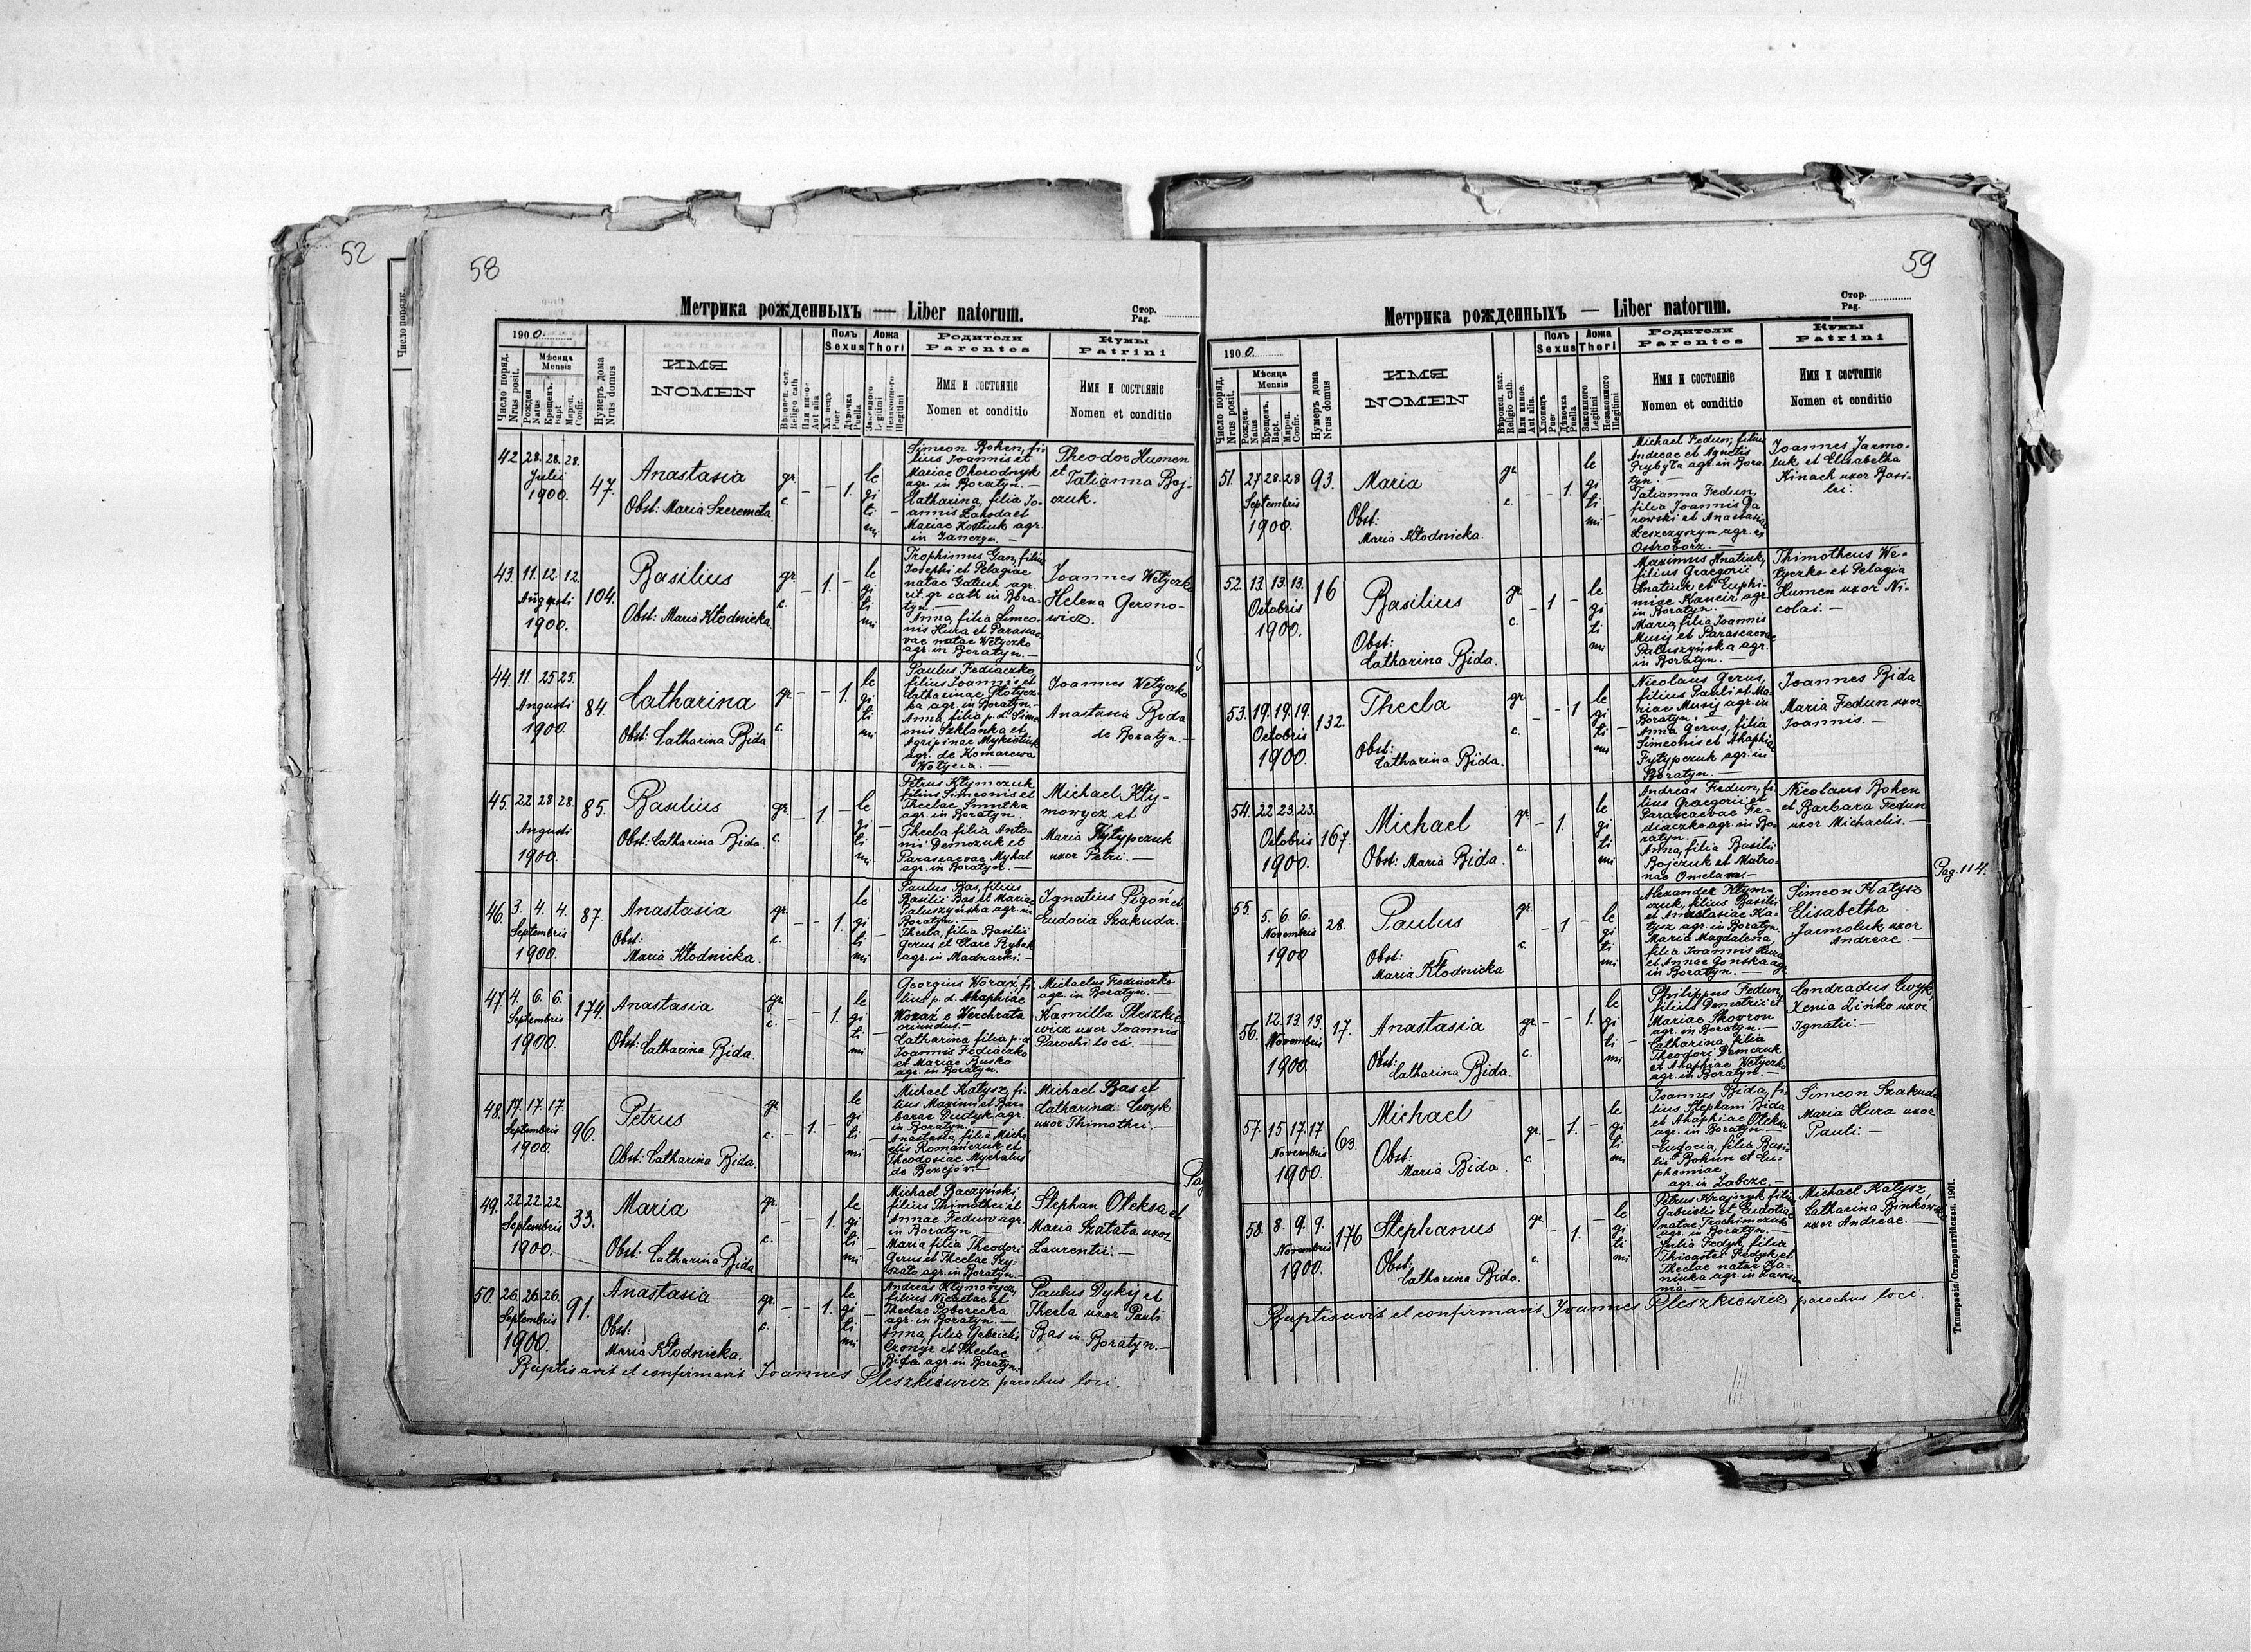 52
Число порядк.
58
Метрика рожденныхъ — Liber natorum.
Стор.
Pag.
1900
Число поряд.
Nrus posit.
Мѣсяца
Mensis
Рожден
Natus
Крещенъ.
Bapt
Мѵроп.
Confir.
Нумеръ дома
Nrus domus
ИМЯ
NOMEN
Religio cath
Или иное
Aut alia
Полъ
Sexus
Хлопецъ
Puer
Дѣвочка
Puella
Ложа
Thori
Законного
Legitimi
Незаконного
Illegitimi
Родители
Parentes
Имя и состояніе
Nomen et conditio
Кумы
Patrini
Имя и состояніе
Nomen et conditio
42. 28. 28. 28.
Julii
1900.
47.
Anastasia
Obst: Maria Szeremeta
gr. c. – – 1.
le gi ti mi
Simeon Bohen, fi-
lius Joannis et
Mariae Ohorodnyk
agr. in Boratyn. —
Catharina, filia Jo-
annis Lahoda et
Mariae Kostiuk agr.
in Janczyn. —
Theodor Humen
et Tatianna Boj-
czuk.
43. 11. 12. 12.
Augusti
1900.
104.
Basilius
Obst: Maria Kłodnicka.
gr. c. – 1. –
le gi ti mi
Trophimus Gan, filius
Josephi et Pelagiae
natae Gatuch agr.
rit. gr cath in Bora-
tyn. —
Anna, filia Simeo-
nis Hura et Parascae-
vae natae Wetyczko
agr. in Boratyn. —
Joannes Wetyczko
Helena Gerono-
wicz.
44. 11. 25 25.
Augusti
1900.
84.
Catharina
Obst: Catharina Bida
gr. c. – – 1.
le gi ti mi
Paulus Fediaczko,
filius Joannis et
Catharinae Płotycz-
ka agr. in Boratyn. —
Anna, filia p. d. Sime
onis Szklanka et
Agripinae Mykietiuk
agr. de Komarewa
Wołycia. —
Joannes Wetyczko
Anastasia Bida
de Boratyn. —
45. 22 28 28.
Augusti
1900.
85.
Basilius
Obst: Catharina Bida.
gr. c. – 1. –
le gi ti mi
Petrus Kłymczuk
filius Simeonis et
Theclae Smutka
agr. in Boratyn.
Thecla filia Anto-
nii Demczuk et
Parascaevae Myhal
agr. in Boratyn. —
Michael Kły-
mowycz et
Maria Fyłypczuk
uxor Petri. —
46. 3. 4. 4.
Septembris
1900.
87.
Anastasia
Obst:
Maria Kłodnicka.
gr. c. – – 1.
le gi ti mi
Paulus Bas, filius
Basilii Bas et Mariae
Paluszyńska agr. in
Boratyn. —
Thecla, filia Basilii
Gerus et Clare Rybak
agr. in Madzarki. —
Ignatius Pigoń et
Eudocia Szakuda.
47. 4. 6. 6.
Septembris
1900.
174.
Anastasia
Obst: Catharina Bida.
gr. c. – – 1.
le gi ti mi
Georgius Woraź, fi-
lius p. d. Ahaphiae
Woraź e Werchrata
oriundus. —
Catharina filia p. d
Joannis Fediaczko
et Mariae Busko
agr. in Boratyn.
Michaelus Fediaczko
agr. in Boratyn. —
Kamilla Pleszkie
wicz uxor Joannis
Parochi loci. —
48. 17. 17. 17.
Septembris
1900.
96.
Petrus
Obst: Catharina Bida.
gr. c. – 1. –
le gi ti mi
Michael Katysz, fi-
lius Maximi et Bar-
barae Dudyk agr.
in Boratyn. —
Anastasia, filia Micha
elis Romańczuk et
Theodosiae Mychaluś
de Bezejów. —
Michael Bas et
Catharina Cwyk
uxor Thimothei. —
49. 22. 22. 22.
Septembris
1900.
33.
Maria
Obst: Catharina Bida
gr. c. – – 1.
le gi ti mi
Michael Baczyński,
filius Thimothei et
Annae Fedun agr.
in Boratyn. —
Maria filia Theodori
Gerus et Theclae Szy-
szato agr. in Boratyn. —
Stephan Oteksa et
Maria Szatata uxor
Laurentii. —
50. 26. 26. 26.
Septembris
1900.
91.
Anastasia
Obst:
Maria Kłodnicka.
gr. c. – – 1.
le gi ti mi
Andreas Kłymowycz,
filius Nicetae et
Theclae Poborecka
agr. in Boratyn. —
Anna, filia Gabrielis
Czonyr et Theclae
Bida agr. in Boratyn.
Paulus Dyky et
Thecla uxor Pauli
Bas in Boratyn. —
Baptisavit et confirmavit Joannes Pleszkiewicz parochus loci.
59
Метрика рожденныхъ — Liber natorum.
Стор.
Pag.
1900.
Число поряд.
Nrus posit.
Мѣсяца
Mensis
Рожден.
Natus
Крещенъ.
Bapt.
Мѵроп.
Confir.
Нумеръ дома
Nrus domus
ИМЯ
NOMEN
Вѣроисп. кат.
Religio cath.
Или иное.
Aut alia.
Полъ
Sexus
Хлопецъ
Puer
Дѣвочка
Puella
Ложа
Thori
Законного
Legitimi
Незаконного
Illegitimi
Родители
Parentes
Имя и состояніе
Nomen et conditio
Кумы
Patrini
Имя и состояніе
Nomen et conditio
51. 27 28. 28
Septembris
1900.
93.
Maria
Obst:
Maria Kłodnicka.
gr. c. – – 1.
le gi ti mi
Michael Fedun, filius
Andreae et Agnetis
Prybyła agr. in Bora
tyn. —
Tatianna Fedun,
filia Joannis Da
rowski et Anastasiae
Leszczyszyn agr. ex
Ostroborz. —
Joannes Jarmo-
luk et Elisabetha
Kinach uxor Basi-
lei.
52. 13. 13. 13.
Octobris
1900.
16
Basilius
Obst:
Catharina Bida.
gr. c. – 1 –
le gi ti mi
Maximus Hnatiuk,
filius Graegorii
Hnatiuk et Euphi-
miae Kancir agr.
in Boratyn. —
Maria, filia Joannis
Musij et Parascaevae
Paluszyńska agr.
in Boratyn. —
Thimotheus We-
tyczko et Pelagia
Humen uxor Ni-
colai. —
53. 19. 19. 19.
Octobris
1900.
132.
Thecla
Obst:
Catharina Bida.
gr. c. – – 1
le gi ti mi
Nicolaus Gerus,
filius Pauli et Ma-
riae Musij agr. in
Boratyn. —
Anna Gerus, filia
Simeonis et Ahaphiae
Fyłypczuk agr. in
Boratyn. —
Joannes Bida
Maria Fedun uxor
Joannis. —
54. 22 23. 23.
Octobris
1900.
167.
Michael
Obst: Maria Bida.
gr. c. – 1. –
le gi ti mi
Andreas Fedun, fi-
lius Graegorii et
Parascaevae Fe-
diaczko agr. in Bo-
ratyn. —
Anna, filia Basilii
Bojczuk et Matro-
nae Omelan. —
Nicolaus Bohen
et Barbara Fedun
uxor Michaelis. —
Pag. 114.
55. 5. 6. 6.
Novembris
1900
28.
Paulus
Obst:
Maria Kłodnicka
gr. c. – 1 –
le gi ti mi
Alexander Kłym-
czuk, filius Basilii
et Anastasiae Ka-
tysz agr. in Boratyn.
Maria Magdalena,
filia Joannis Hura
et Annae Gonska agr
in Boratyn. —
Simeon Katysz
Elisabetha
Jarmoluk uxor
Andreae. —
56. 12. 13. 13.
Novembris
1900.
17.
Anastasia
Obst:
Catharina Bida.
gr. c. – – 1.
le gi ti mi
Philippus Fedun,
filius Demetrii et
Mariae Skovron
agr. in Boratyn. —
Catharina, filia
Theodori Demczuk
et Ahaphiae Wetyczko
agr. in Boratyn. —
Condradus Cwyk,
Xenia Zińko uxor
Ignatii. —
57. 15 17. 17
Novembris
1900.
63.
Michael
Obst:
Maria Bida.
gr. c. – 1. –
le gi ti mi
Joannes Bida, fi-
lius Stephani Bida
et Ahaphiae Oteksa
agr. in Boratyn. —
Eudocia, filia Basi-
lii Bohun et Eu-
phemiae,
agr. in Zabcze. —
Simeon Szakuda
Maria Hura uxor
Pauli. —
58. 8. 9. 9.
Novembris
1900.
176
Stephanus
Obst:
Catharina Bida.
gr. c. – 1. –
le gi ti mi
Petrus Krajnyk filius
Gabrielis et Eudotiae
natae Trochimczuk
agr. in Boratyn. —
Julia Fedyk, filia
Fedyk et
Theclae natae Ka-
niuka agr. in
Michael Katysz
Catharina Binków
uxor Andreae. —
Baptisavit et confirmavit Joannes Pleszkiewicz parochus loci.
Типографія Ставропигійская. 1901.